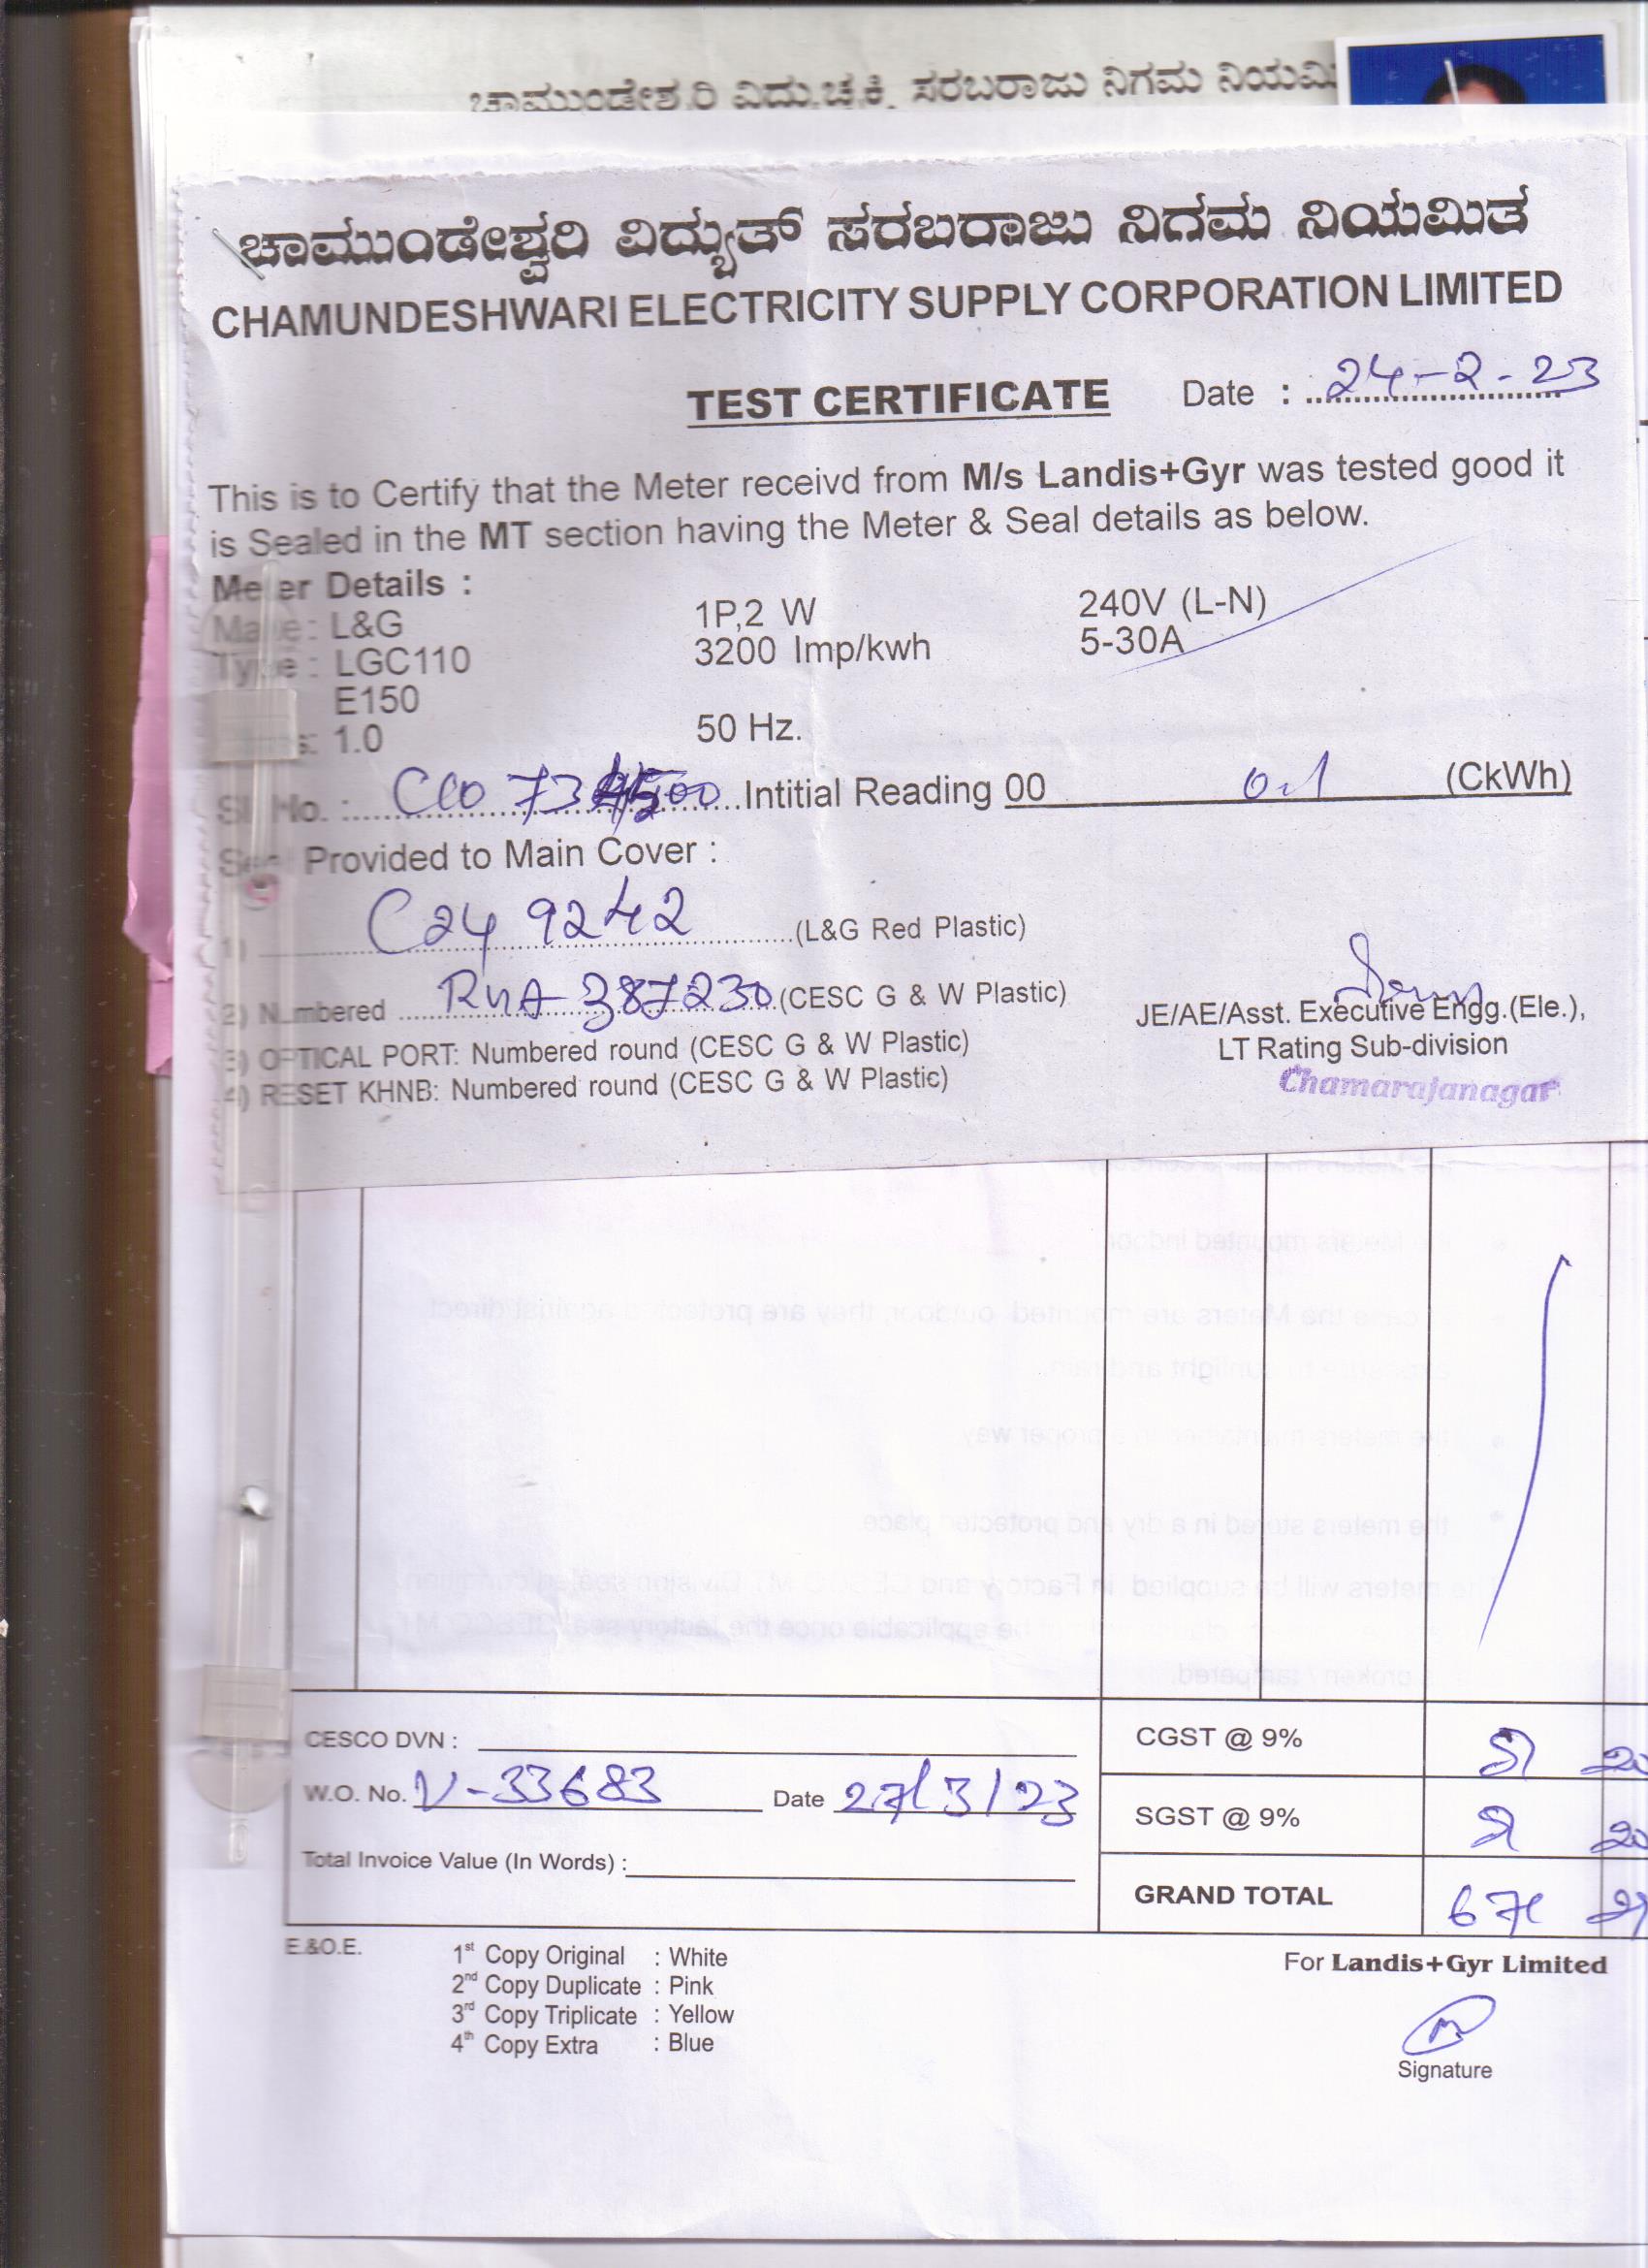 ಚಾಮುಂಡೇಶ್ವರಿ ಸರಬರಾಜು ನಿಗಮ
ಚಾಮುಂಡೇಶ್ವರಿ ವಿದ್ಯುತ್ ಸರಬರಾಜು ನಿಗಮ ನಿಯಮಿತ
CHAMUNDESHWARI ELECTRICITY SUPPLY CORPORATION LIMITED
TEST CERTIFICATE Date : 24-2-23
This is to Certify that the Meter receivd from M/s Landis+Gyr was tested good it
is Sealed in the MT section having the Meter & Seal details as below.
Meter Details :
Make : L&G 1P,2 W 240V (L-N)
Type : LGC110 3200 Imp/kwh 5-30A
E150
1.0 50 Hz.
Sl No. : Intitial Reading 00 0.1 (CkWh)
Seal Provided to Main Cover :
1) C24 9242 (L&G Red Plastic)
2) Numbered 387230 (CESC G & W Plastic)
JE/AE/Asst. Executive Engg.(Ele.),
3) OPTICAL PORT: Numbered round (CESC G & W Plastic)
LT Rating Sub-division
4) RESET KHNB: Numbered round (CESC G & W Plastic)
Chamarajanagar
CESCO DVN :
CGST @ 9%
W.O. No. V-33683 Date 27/3/23
SGST @ 9%
Total Invoice Value (In Words) :
GRAND TOTAL
E.&O.E.
1st Copy Original : White
For Landis+Gyr Limited
2nd Copy Duplicate : Pink
3rd Copy Triplicate : Yellow
4th Copy Extra : Blue
Signature